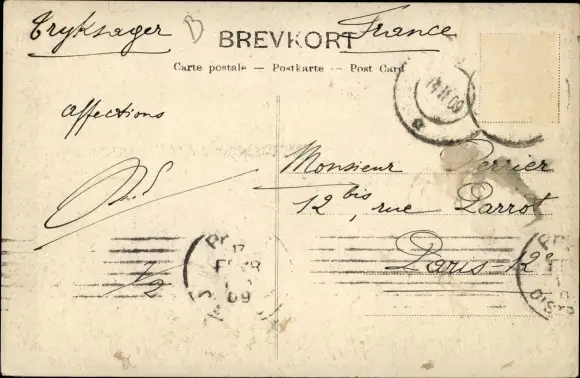 Tryksager
B
France
BREVKORT
Carte postale — Postkarte — Post Card
14 11 09
affections
Monsieur Perrier
12 bis, rue Parrot
Paris-12e
1/2
17
FEVR
09